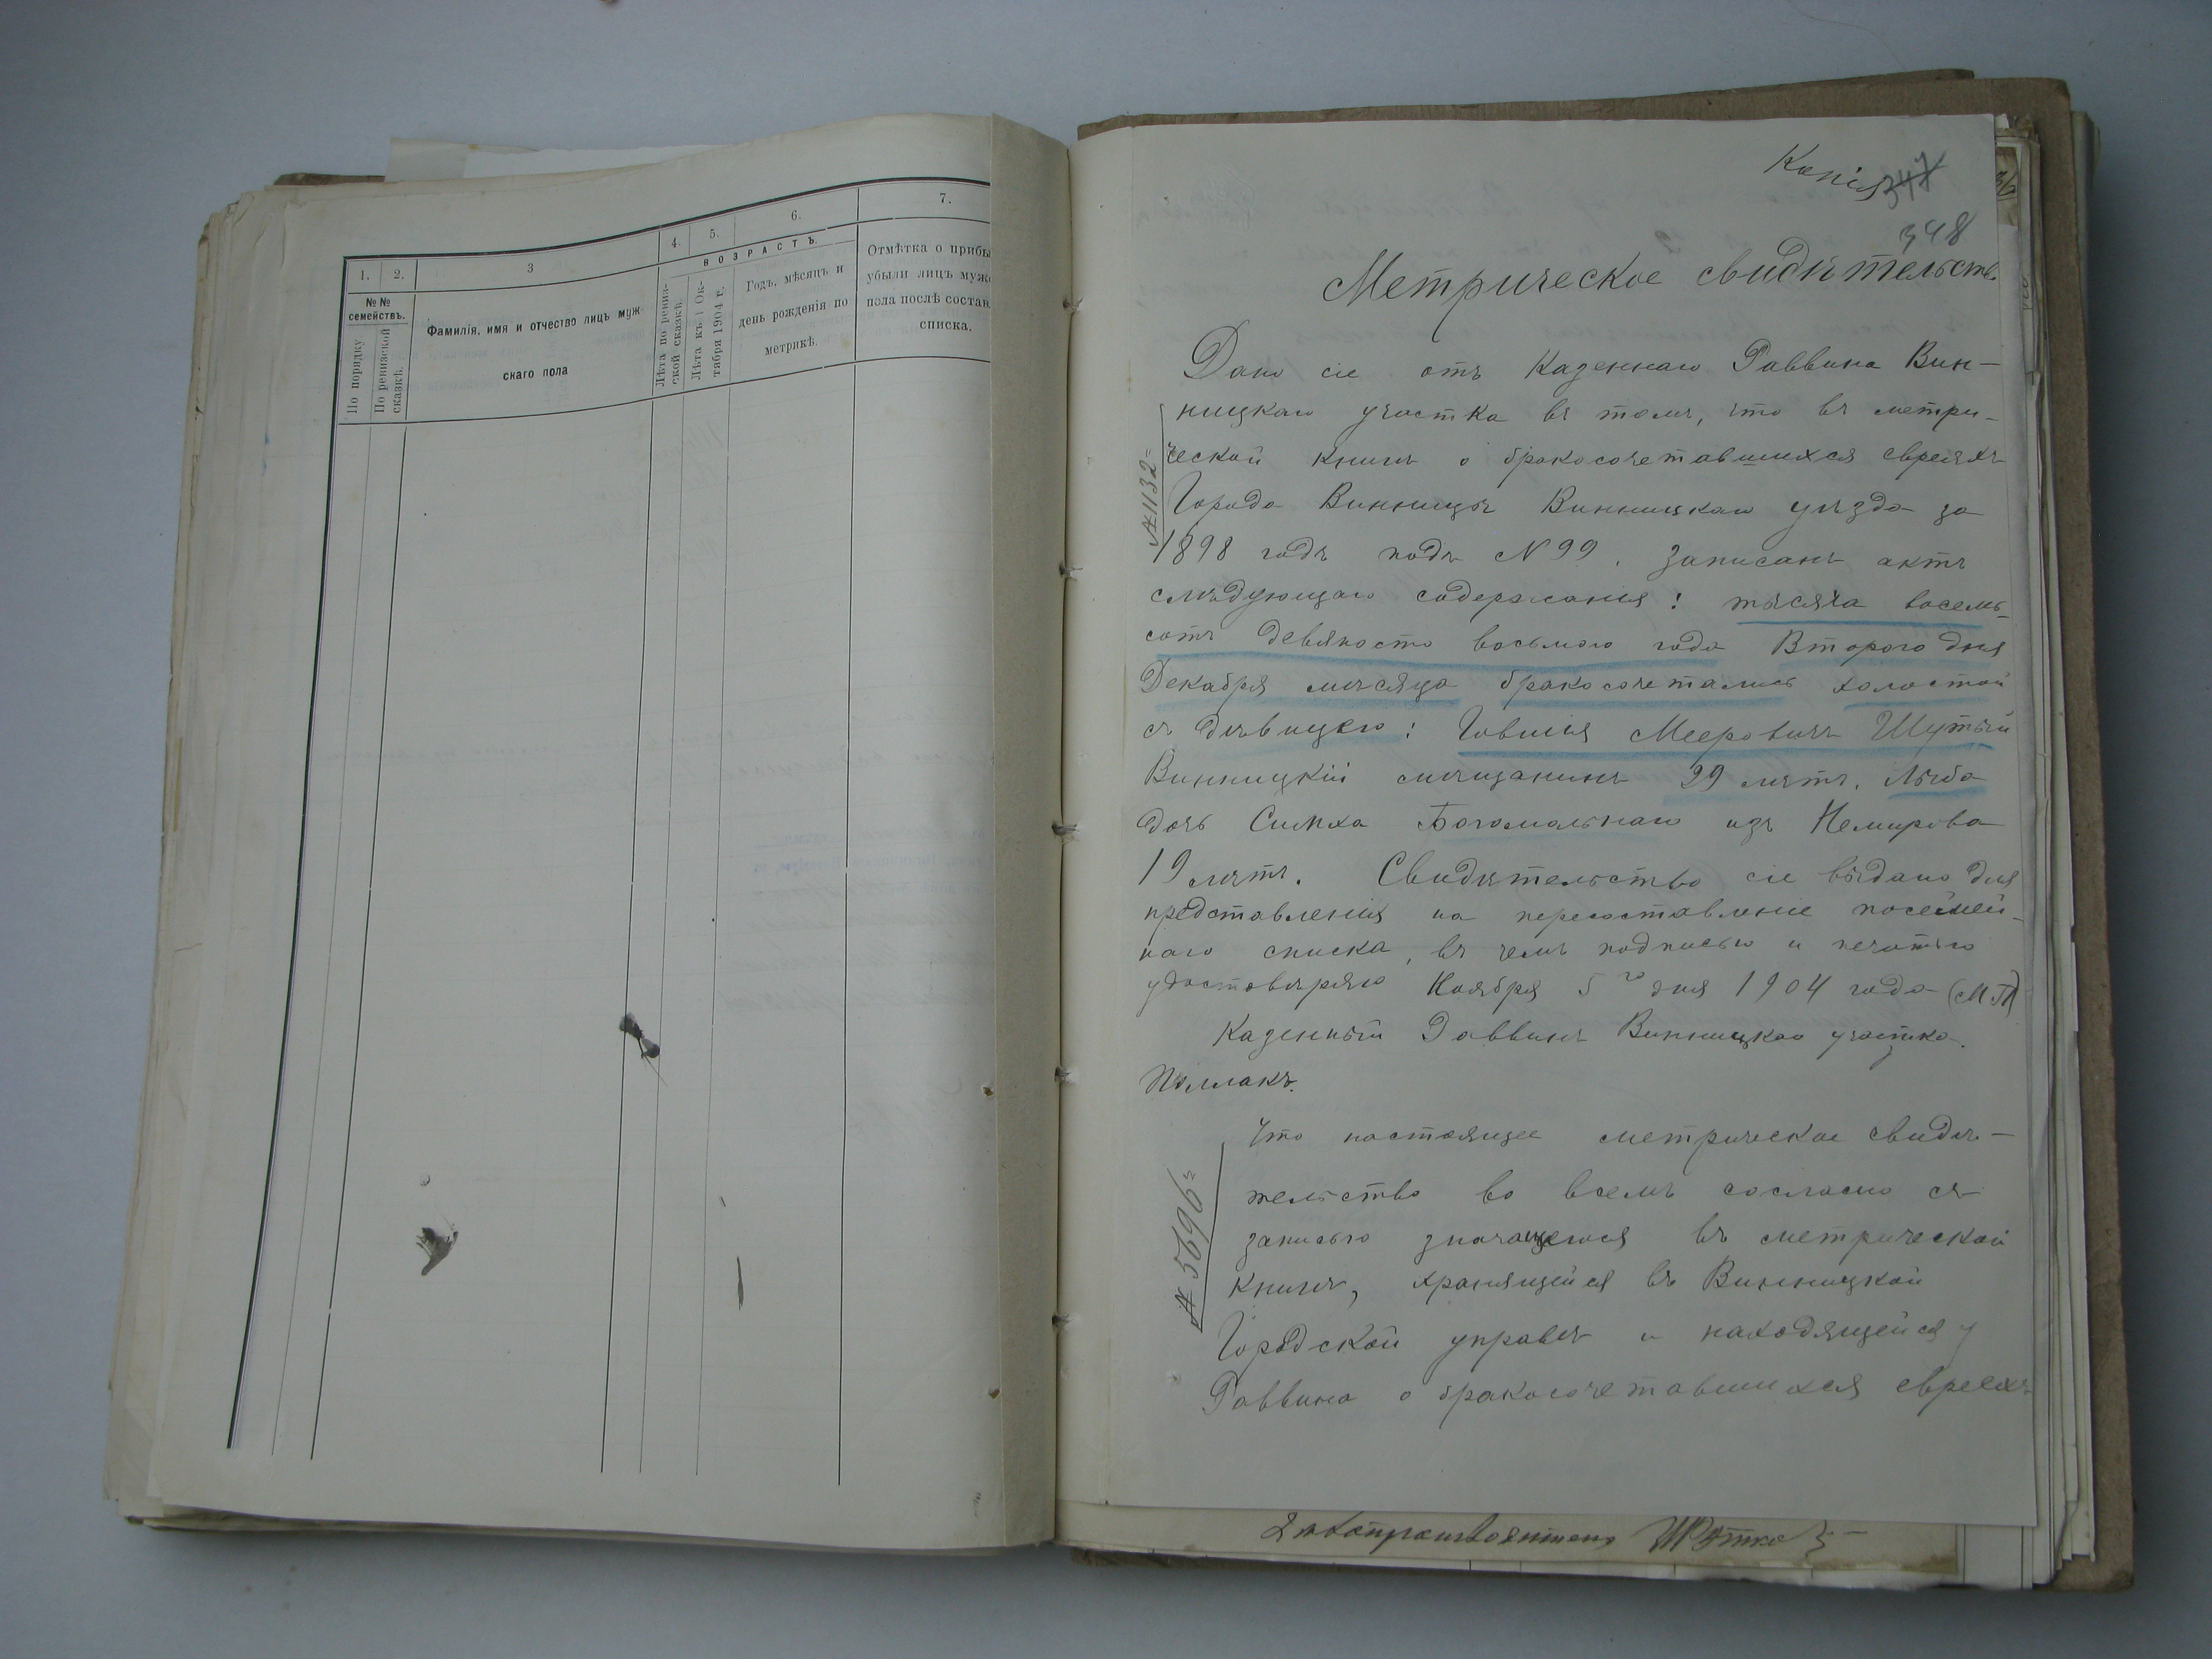 1.
2.
3
4.
5.
6.
7.
№№ семействъ.
По порядку
По ревизской сказкѣ.
Фамилія, имя и отчество лицъ муж-
скаго пола
ВОЗРАСТЪ.
Лѣта по ревиз-
ской сказкѣ.
Лѣта къ 1 Ок-
тября 1904 г.
Годъ, мѣсяцъ и
день рожденія по
метрикѣ.
Отмѣтка о прибы
убыли лицъ муж
пола послѣ состав
списка.
Копія
347
348
Метрическое свидѣтельств.
Дано сіе отъ Казеннаго Раввина Вин-
ницкаго участка въ томъ, что въ метри-
ческой книгѣ о бракосочетавшихся евреяхъ
Города Винницы Винницкаго уѣзда за
1898 годъ подъ N 99. Записанъ актъ
слѣдующаго содержанія: тысяча восемь-
сотъ девяносто восьмого года Второго дня
Декабря мѣсяца бракосочетались холостой
съ дѣвицею: Говшія Мееровичъ Шутый
Винницкій мѣщанинъ 29 лѣтъ. Лыба
дочь Симха Богомольнаго изъ Немирова
19 лѣтъ. Свидѣтельство сіе выдано для
представленія на пересоставленіе посемей-
наго списка, въ чемъ подписью и печатью
удостовѣряю Ноября 5го дня 1904 года (МП)
Казенный Раввинъ Винницкаго участка.
Поллакъ.
№ 1132=
Что настоящее метрическое свидѣ-
тельство во всемъ согласно съ
записью значащеюся въ метрической
книгѣ, хранящейся въ Винницкой
Городской управѣ и находящейся у
Раввина о бракосочетавшихся евреяхъ
№ 5696=